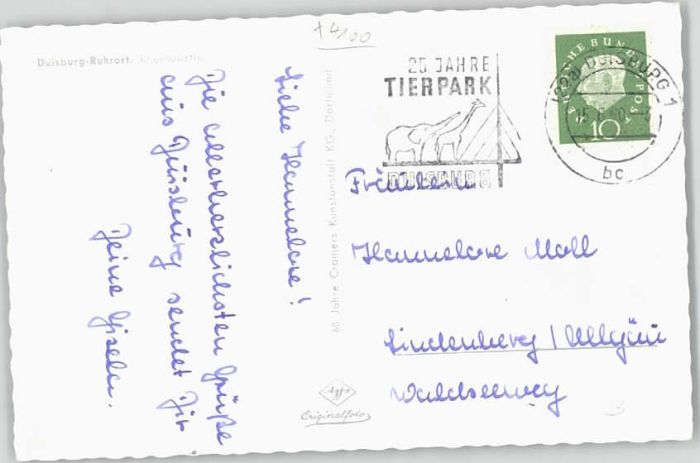 +4/00
Duisburg-Ruhrort.
Liebe Hannelore!
Die allerherzlichsten Grüße
aus Duisburg sendet Dir
Deine Gisela.
60 Jahre Cramers Kunstanstalt KG., Dortmund
25 JAHRE
TIERPARK
DUISBURG
DUISBURG 1
bc
DEUTSCHE BUNDESPOST
10
Fräulein
Hannelore Moll
Lindenberg / Allgäu
Waldseeweg
Agfa
Originalfoto